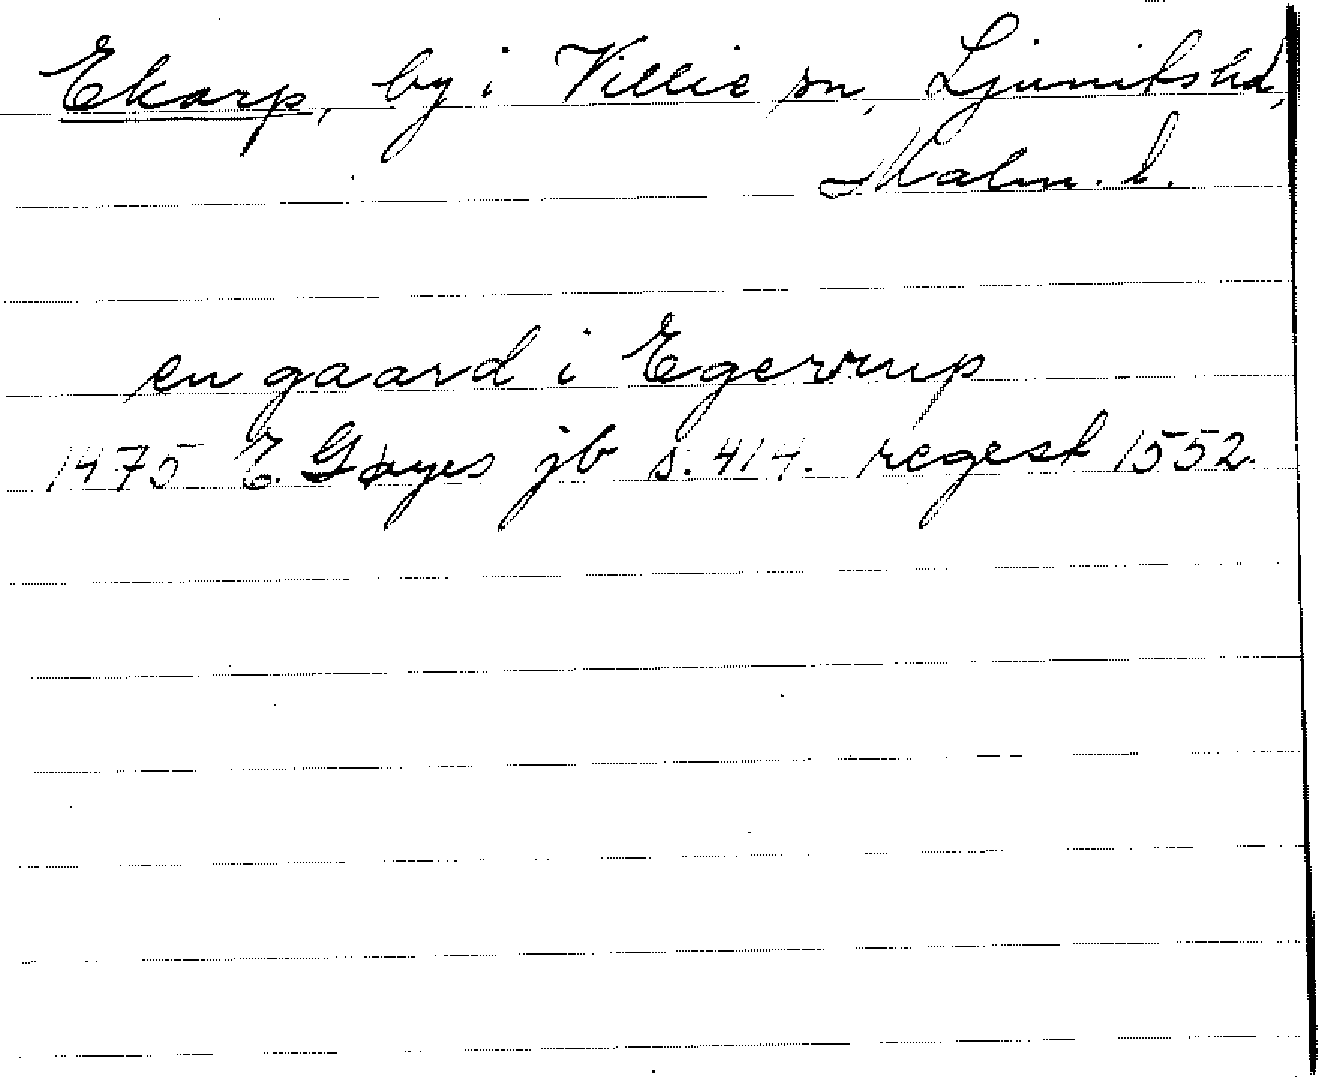 Ekarp, by i Villie sn, Ljunitshd,
Malm. l.
en gaard i Egerrup
1475 E. Gøyes jb s. 414. regest 1552.